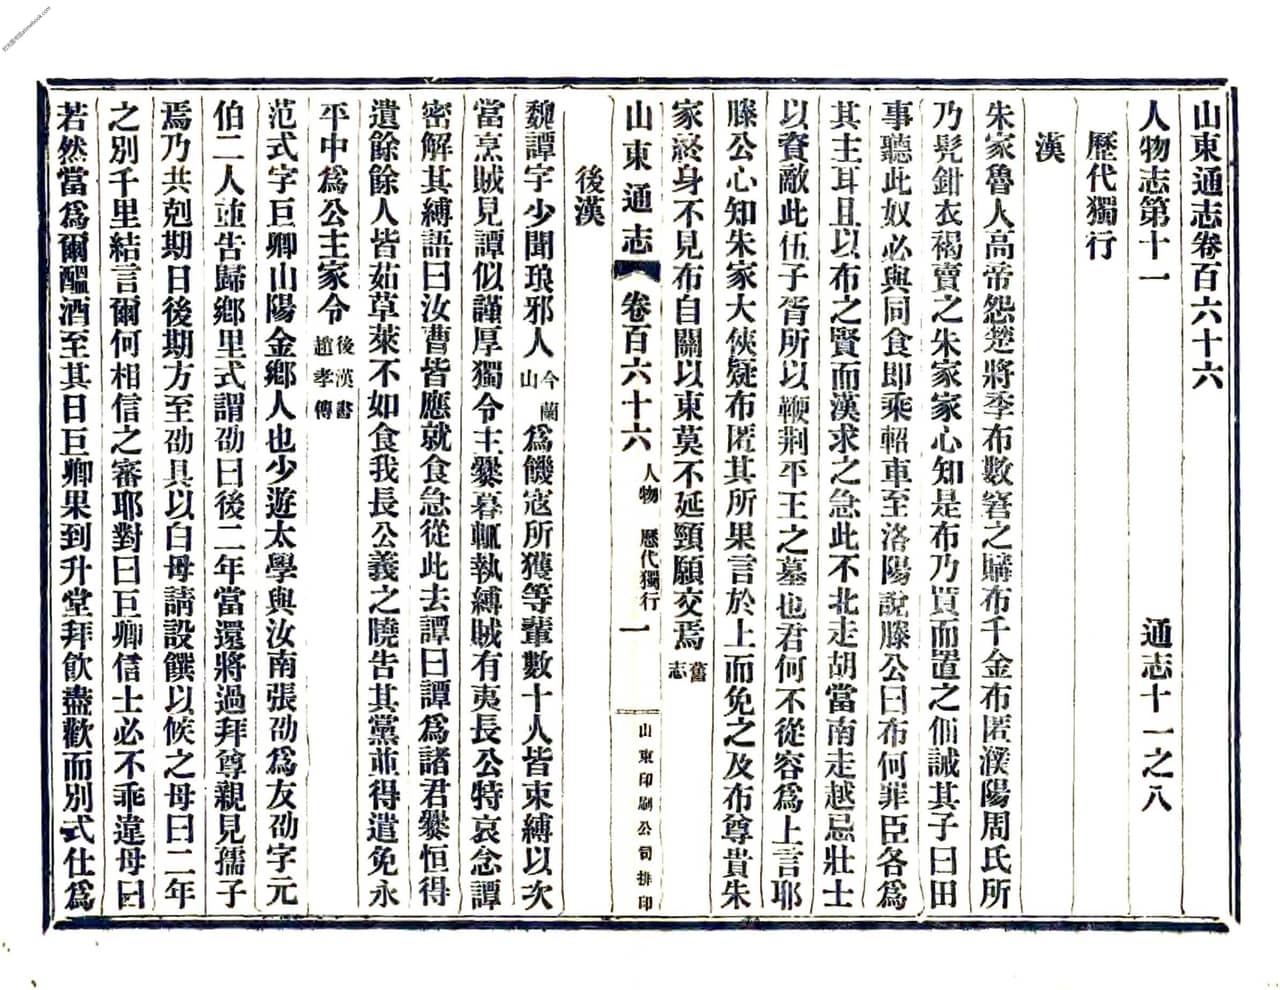 山東通志卷百六十六
人物志第十一　通志十一之八
歷代獨行
漢
朱家魯人高帝怨楚將季布數窘之購布千金布匿濮陽周氏所
乃髠鉗衣褐賣之朱家家心知是布乃買而置之佃誡其子曰田
事聽此奴必與同食即乘軺車至洛陽說滕公曰布何罪臣各爲
其主耳且以布之賢而漢求之急此不北走胡當南走越忌壯士
以資敵此伍子胥所以鞭荆平王之墓也君何不從容爲上言耶
滕公心知朱家大俠疑布匿其所果言於上而免之及布尊貴朱
家終身不見布自關以東莫不延頸願交焉舊志
山東通志　卷百六十六　人物　歷代獨行　一　山東印刷公司排印
後漢
魏譚字少聞琅邪人今蘭山爲饑寇所獲等輩數十人皆束縛以次
當烹賊見譚似謹厚獨令主爨暮輒執縛賊有夷長公特哀念譚
密解其縛語曰汝曹皆應就食急從此去譚曰譚爲諸君爨恒得
遺餘餘人皆茹草萊不如食我長公義之曉告其黨並得遣免永
平中爲公主家令後漢書趙孝傳
范式字巨卿山陽金鄉人也少遊太學與汝南張劭爲友劭字元
伯二人並告歸鄉里式謂劭曰後二年當還將過拜尊親見孺子
焉乃共剋期日後期方至劭具以白母請設饌以候之母曰二年
之別千里結言爾何相信之審耶對曰巨卿信士必不乖違母曰
若然當爲爾醞酒至其日巨卿果到升堂拜飲盡歡而別式仕爲